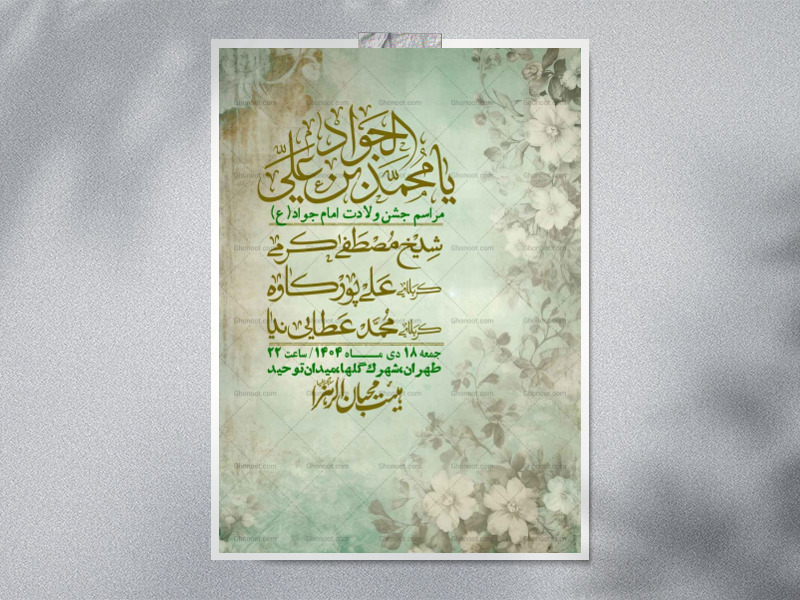 یا محمد بن علی الجواد
مراسم جشن ولادت امام جواد(ع)
شیخ مصطفی کرمی
کربلایی علی پورکاوه
کربلایی محمد عطایی نیا
جمعه ۱۸ دی مـاه ۱۴۰۴ / ساعت ۲۲
طهران،شهرک گلها،میدان توحید
هیئت محبان الزهرا
Ghonoot.com